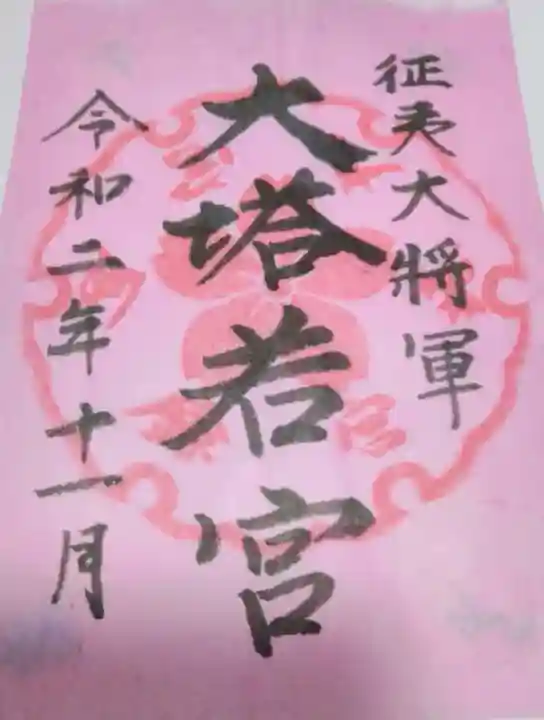 征夷大将軍
大塔若宮
令和二年十一月